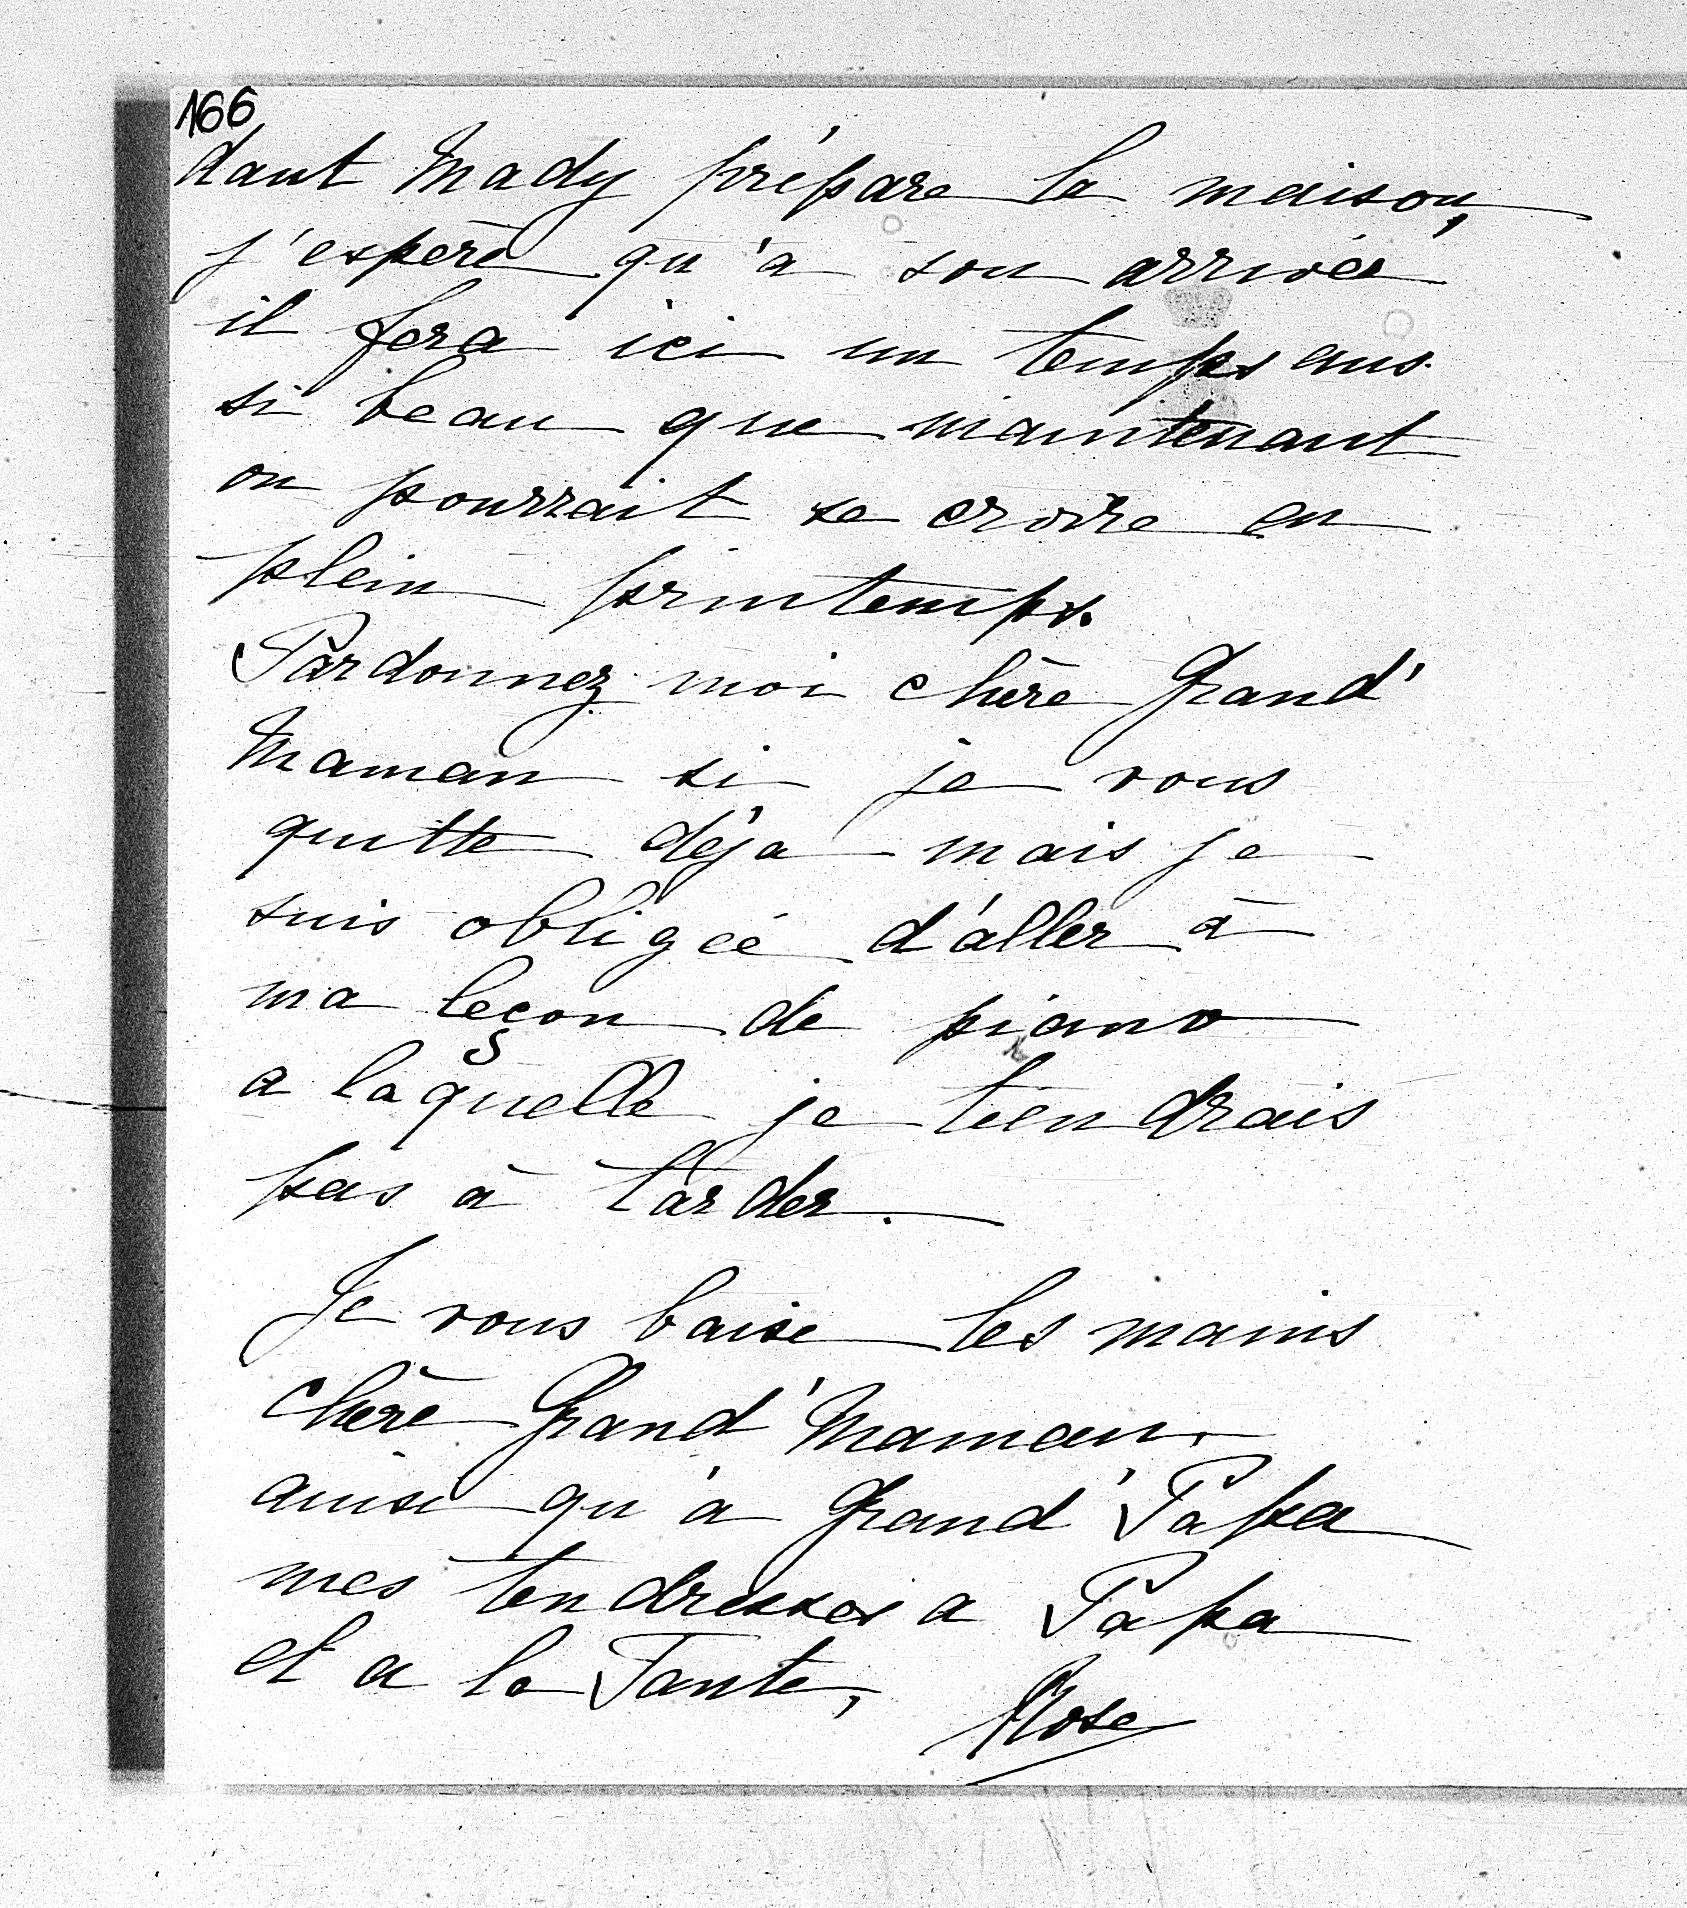 166
dant Mady prépare la maison,
j'espère qu'à son arrivée
il fera ici un temps aus-
si beau que maintenant
on pourrait se croire en
plein printemps.
Pardonnez moi chère Grand'
Maman si je vous
quitte déja mais je
suis obligée d'aller à
ma leçon de piano
a laquelle je tiendrais
pas à tarder.
Je vous baise les mains
chère Grand'Maman.
ainsi qu'à Grand'Papa
mes tendresses a Papa
et a la Tante,
Rose